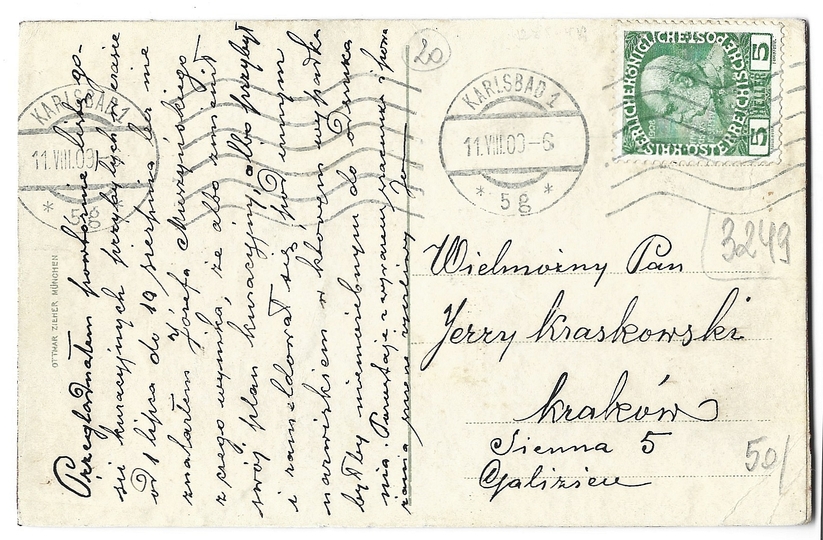 Przeglądnąłem powtórnie listę go-
ści kuracyjnych przybyłych w czasie
od 1 lipca do 19 sierpnia lecz nie
znalazłem Józefa Muszyńskiego
z czego wynika, że albo zmienił
swój plan kuracyjny, albo przybył
i zameldował się pod innym
nazwiskiem w którem wypadku
byłby niemożebnym do
nia. Pozostaję z wyrazem szacunku i powa
żania
OTTMAR ZIEHER MÜNCHEN
KARLSBAD 1
11.VIII.09
* 5g
20
KARLSBAD 1
11.VIII.09-6
* 5g *
KAISERLICHE KÖNIGLICHE ÖSTERREICHISCHE POST
5 HELLER 5
3249
Wielmożny Pan
Jerzy Kraskowski
Kraków
Sienna 5
Galizien
50/